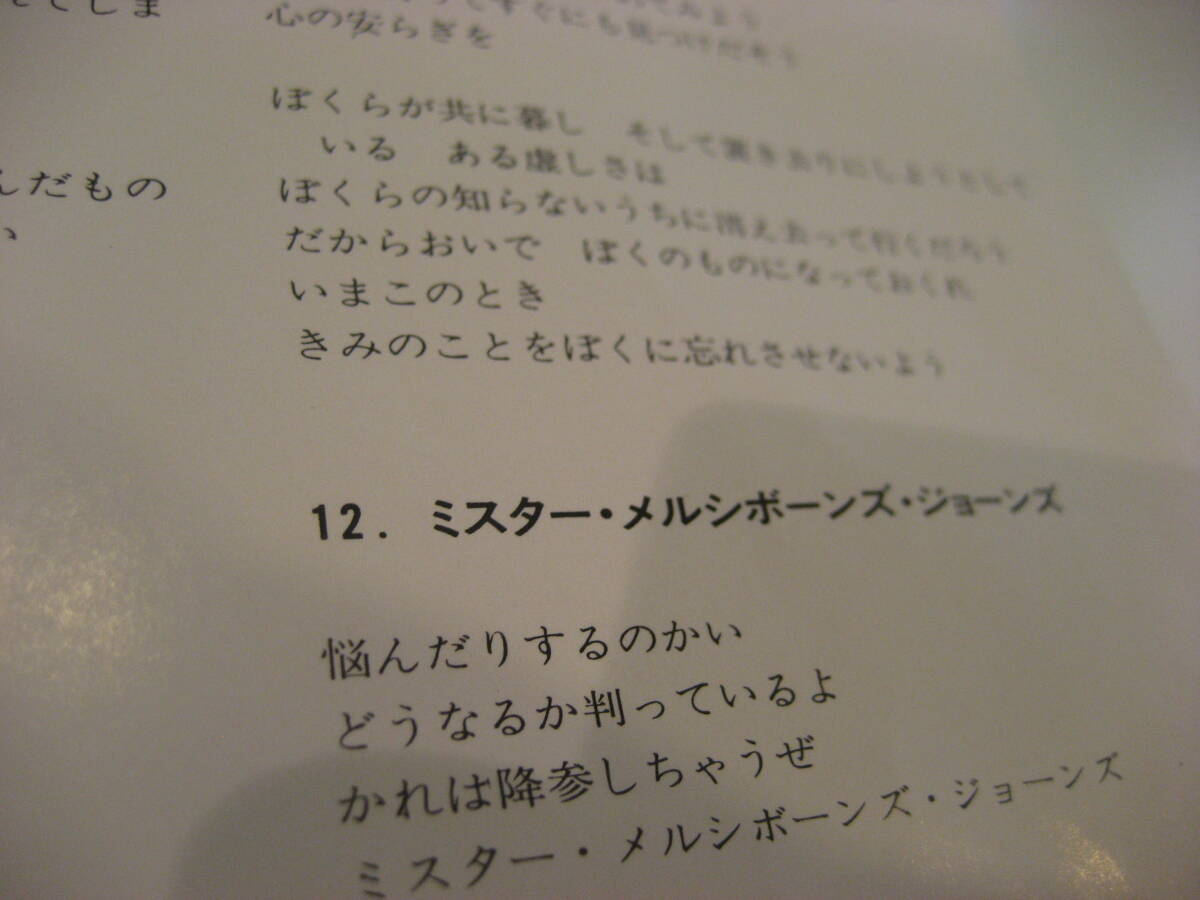 てしま
んだもの
い
すぐにも見つけだそう
心の安らぎを
ぼくらが共に暮し そして置き去りにしようとして
いる ある虚しさは
ぼくらの知らないうちに消え去って行くだろう
だからおいで ぼくのものになっておくれ
いまこのとき
きみのことをぼくに忘れさせないよう
12. ミスター・メルシボーンズ・ジョーンズ
悩んだりするのかい
どうなるか判っているよ
かれは降参しちゃうぜ
ミスター・メルシボーンズ・ジョーンズ